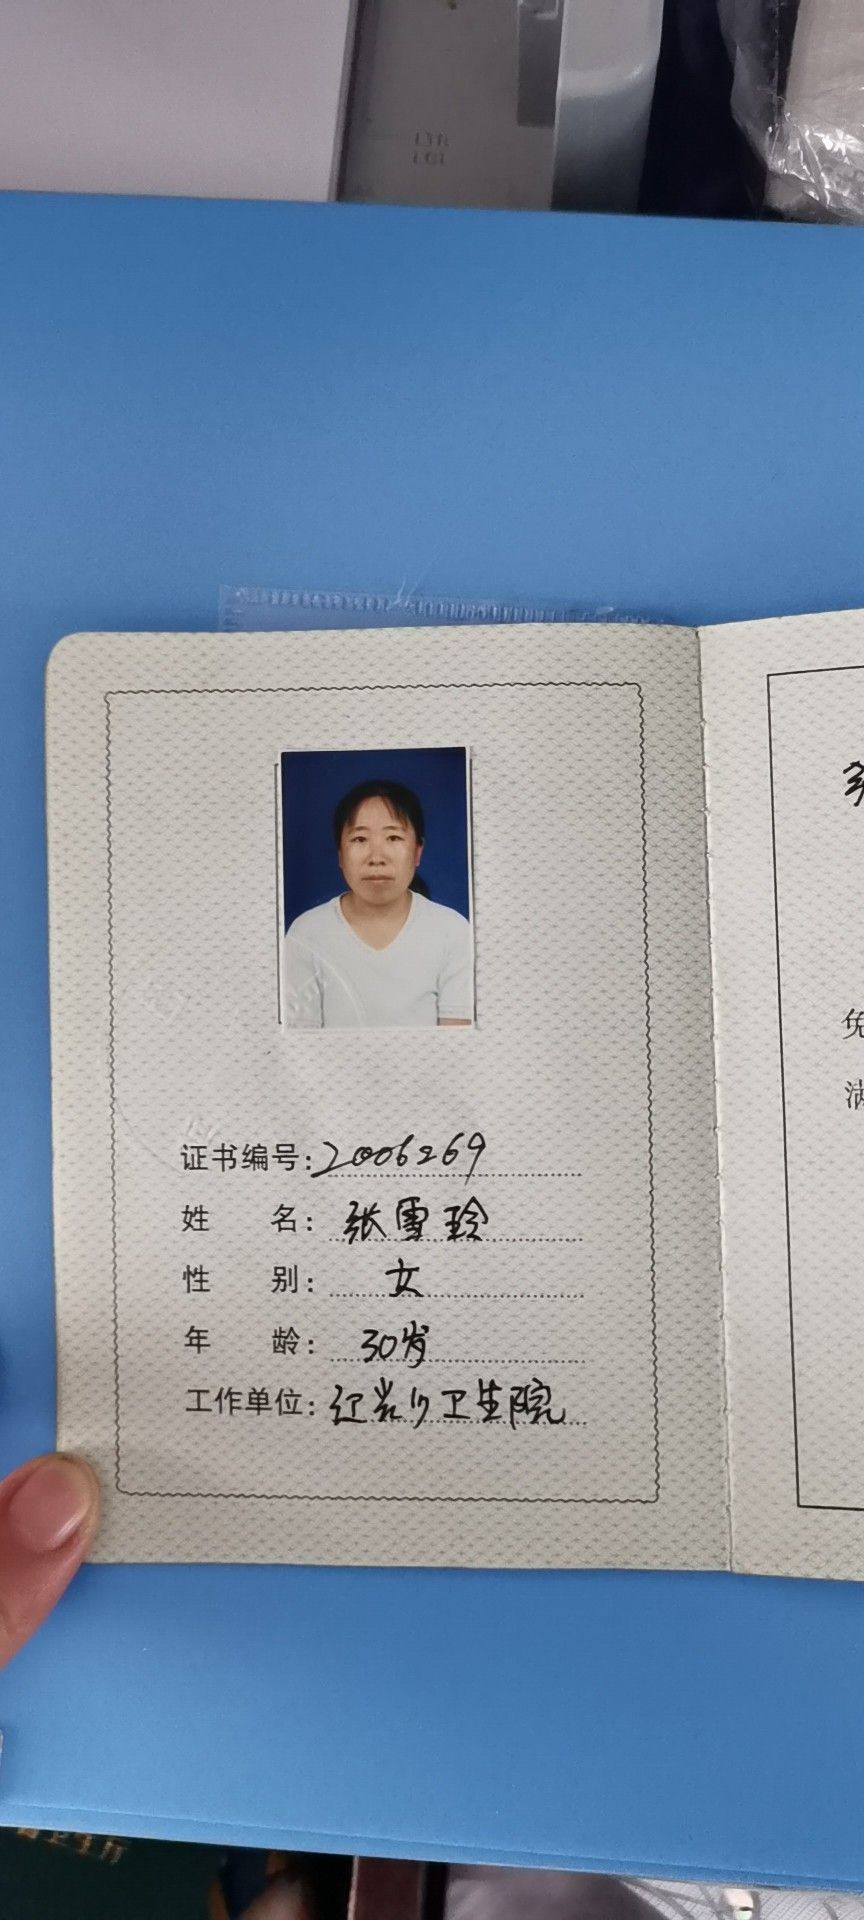 证书编号：2006269
姓名：张雪玲
性别：女
年龄：30岁
工作单位：卫生院
免
满
卫生厅